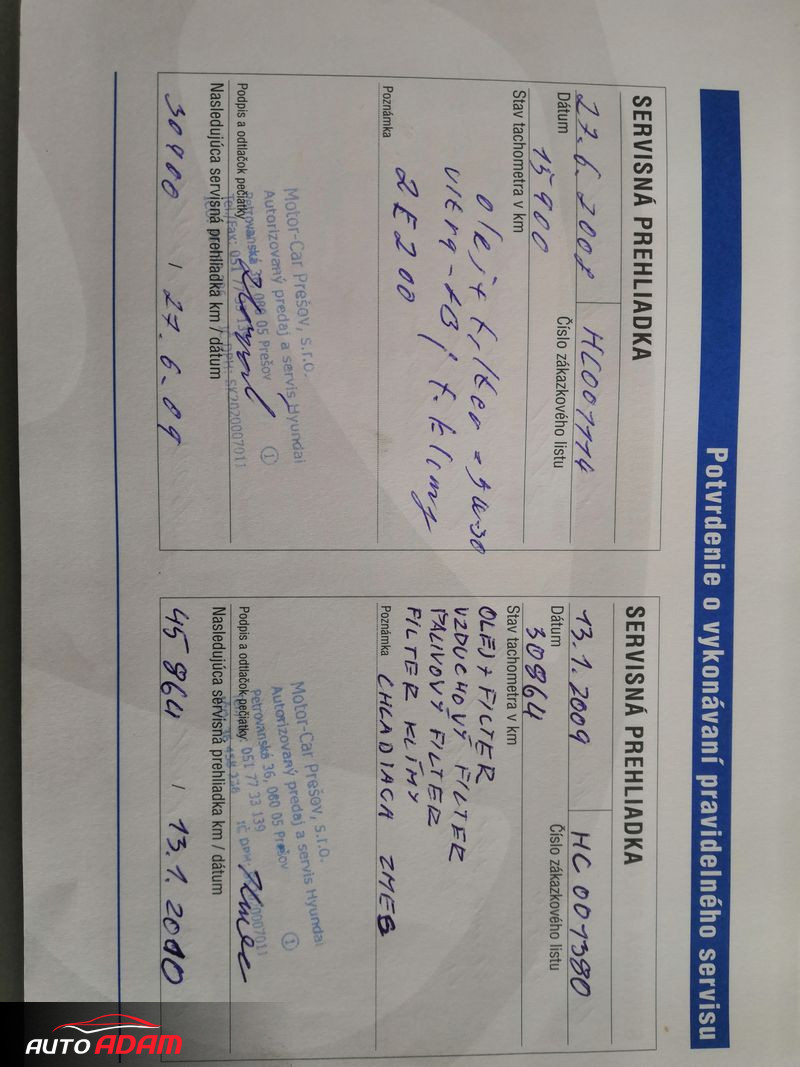 Potvrdenie o vykonávaní pravidelného servisu
SERVISNÁ PREHLIADKA
27.6.2008 HC001114
Dátum Číslo zákazkového listu
15 900
Stav tachometra v km
olej+filter
2E200
Poznámka
Motor-Car Prešov, s.r.o.
Autorizovaný predaj a servis Hyundai
Petrovanská 080 05 Prešov
Tel./Fax: 051 77
SK2020007011
1
Podpis a odtlačok pečiatky
Nasledujúca servisná prehliadka km / dátum
30900 / 27.6.09
SERVISNÁ PREHLIADKA
13.1.2009 HC001380
Dátum Číslo zákazkového listu
30864
Stav tachometra v km
OLEJ+FILTER
VZDUCHOVÝ FILTER
PALIVOVÝ FILTER
FILTER KLÍMY
Poznámka CHLADIACA ZMES
Motor-Car Prešov, s.r.o.
Autorizovaný predaj a servis Hyundai
Petrovanská 36, 080 05 Prešov
051 77 33 139
IČ DPH: 0007011
1
Podpis a odtlačok pečiatky
Nasledujúca servisná prehliadka km / dátum
45864 / 13.1.2010
AUTO ADAM